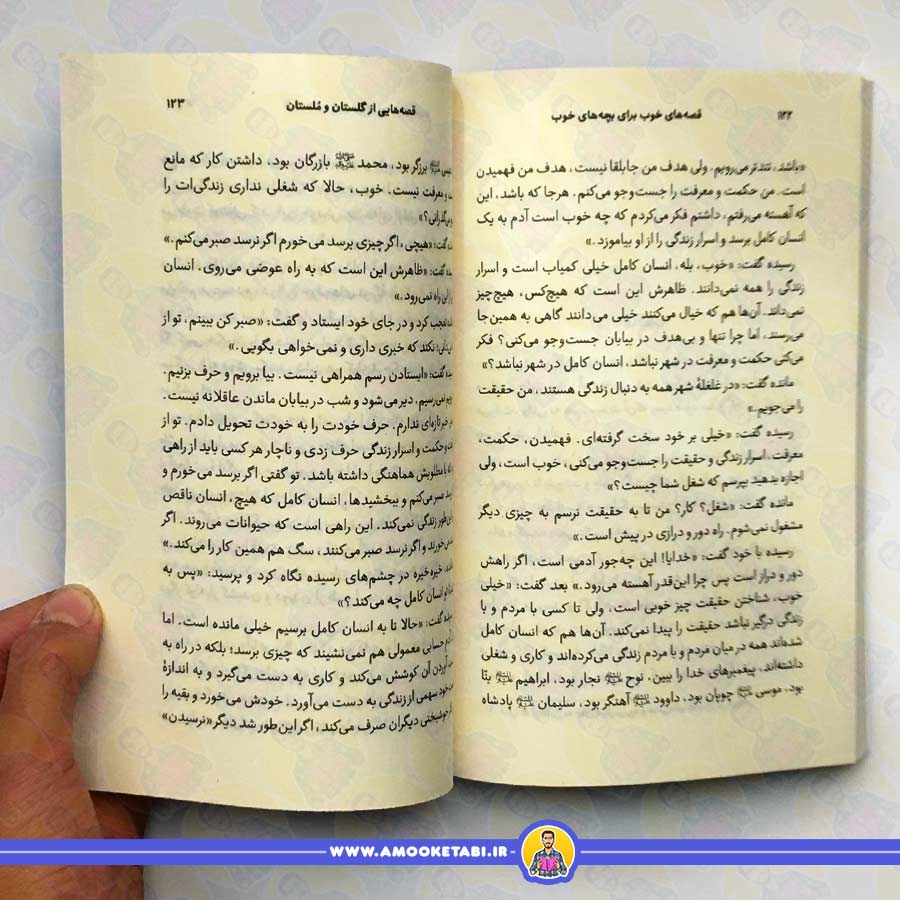 ۱۲۲
قصه‌های خوب برای بچه‌های خوب
«باشد، تندتر می‌رویم. ولی هدف من جابلقا نیست، هدف من فهمیدن
است. من حکمت و معرفت را جست‌وجو می‌کنم. هرجا که باشد، این
که آهسته می‌رفتم، داشتم فکر می‌کردم که چه خوب است آدم به یک
انسان کامل برسد و اسرار زندگی را از او بیاموزد.»
رسیده گفت: «خوب، بله، انسان کامل خیلی کمیاب است و اسرار
زندگی را همه نمی‌دانند. ظاهرش این است که هیچ‌کس، هیچ‌چیز
نمی‌داند. آن‌ها هم که خیال می‌کنند خیلی می‌دانند گاهی به همین‌جا
می‌رسند، اما چرا تنها و بی‌هدف در بیابان جست‌وجو می‌کنی؟ فکر
می‌کنی حکمت و معرفت در شهر نباشد، انسان کامل در شهر نباشد؟»
مانده گفت: «در غلغلهٔ شهر همه به دنبال زندگی هستند، من حقیقت
را می‌جویم.»
رسیده گفت: «خیلی بر خود سخت گرفته‌ای. فهمیدن، حکمت،
معرفت، اسرار زندگی و حقیقت را جست‌وجو می‌کنی، خوب است، ولی
اجازه بدهید بپرسم که شغل شما چیست؟»
مانده گفت: «شغل؟ کار؟ من تا به حقیقت نرسم به چیزی دیگر
مشغول نمی‌شوم. راه دور و درازی در پیش است.»
رسیده با خود گفت: «خدایا! این چه‌جور آدمی است، اگر راهش
دور و دراز است پس چرا این‌قدر آهسته می‌رود.» بعد گفت: «خیلی
خوب، شناختن حقیقت چیز خوبی است، ولی تا کسی با مردم و با
زندگی درگیر نباشد حقیقت را پیدا نمی‌کند. آن‌ها هم که انسان کامل
شده‌اند همه در میان مردم و با مردم زندگی می‌کرده‌اند و کاری و شغلی
داشته‌اند. پیغمبرهای خدا را ببین، نوح نجار بود، ابراهیم بنّا
بود، موسی چوپان بود، داوود آهنگر بود، سلیمان پادشاه
قصه‌هایی از گلستان و ملستان
۱۲۳
برزگر بود، محمد ﷺ بازرگان بود، داشتن کار که مانع
و معرفت نیست. خوب، حالا که شغلی نداری زندگی‌ات را
گفت: «هیچی، اگر چیزی برسد می‌خورم اگر نرسد صبر می‌کنم.»
گفت: «ظاهرش این است که به راه عوضی می‌روی. انسان
این راه نمی‌رود.»
تعجب کرد و در جای خود ایستاد و گفت: «صبر کن ببینم، تو از
نکند که خبری داری و نمی‌خواهی بگویی.»
گفت: «ایستادن رسم همراهی نیست. بیا برویم و حرف بزنیم.
نمی‌رسیم. دیر می‌شود و شب در بیابان ماندن عاقلانه نیست.
خبر تازه‌ای ندارم. حرف خودت را به خودت تحویل دادم. تو از
و حکمت و اسرار زندگی حرف زدی و ناچار هر کسی باید از راهی
با مطلوبش هماهنگی داشته باشد. تو گفتی اگر برسد می‌خورم و
صبر می‌کنم و ببخشیدها، انسان کامل که هیچ، انسان ناقص
این‌طور زندگی نمی‌کند. این راهی است که حیوانات می‌روند. اگر
می‌خورند و اگر نرسد صبر می‌کنند، سگ هم همین کار را می‌کند.»
خیره‌خیره در چشم‌های رسیده نگاه کرد و پرسید: «پس به
انسان کامل چه می‌کند؟»
گفت: «حالا تا به انسان کامل برسیم خیلی مانده است. اما
حسابی معمولی هم نمی‌نشیند که چیزی برسد؛ بلکه در راه به
آوردن آن کوشش می‌کند و کاری به دست می‌گیرد و به اندازهٔ
خود سهمی از زندگی به دست می‌آورد. خودش می‌خورد و بقیه را
خوشبختی دیگران صرف می‌کند، اگر این‌طور شد دیگر «نرسیدن»
WWW.AMOOKETABI.IR